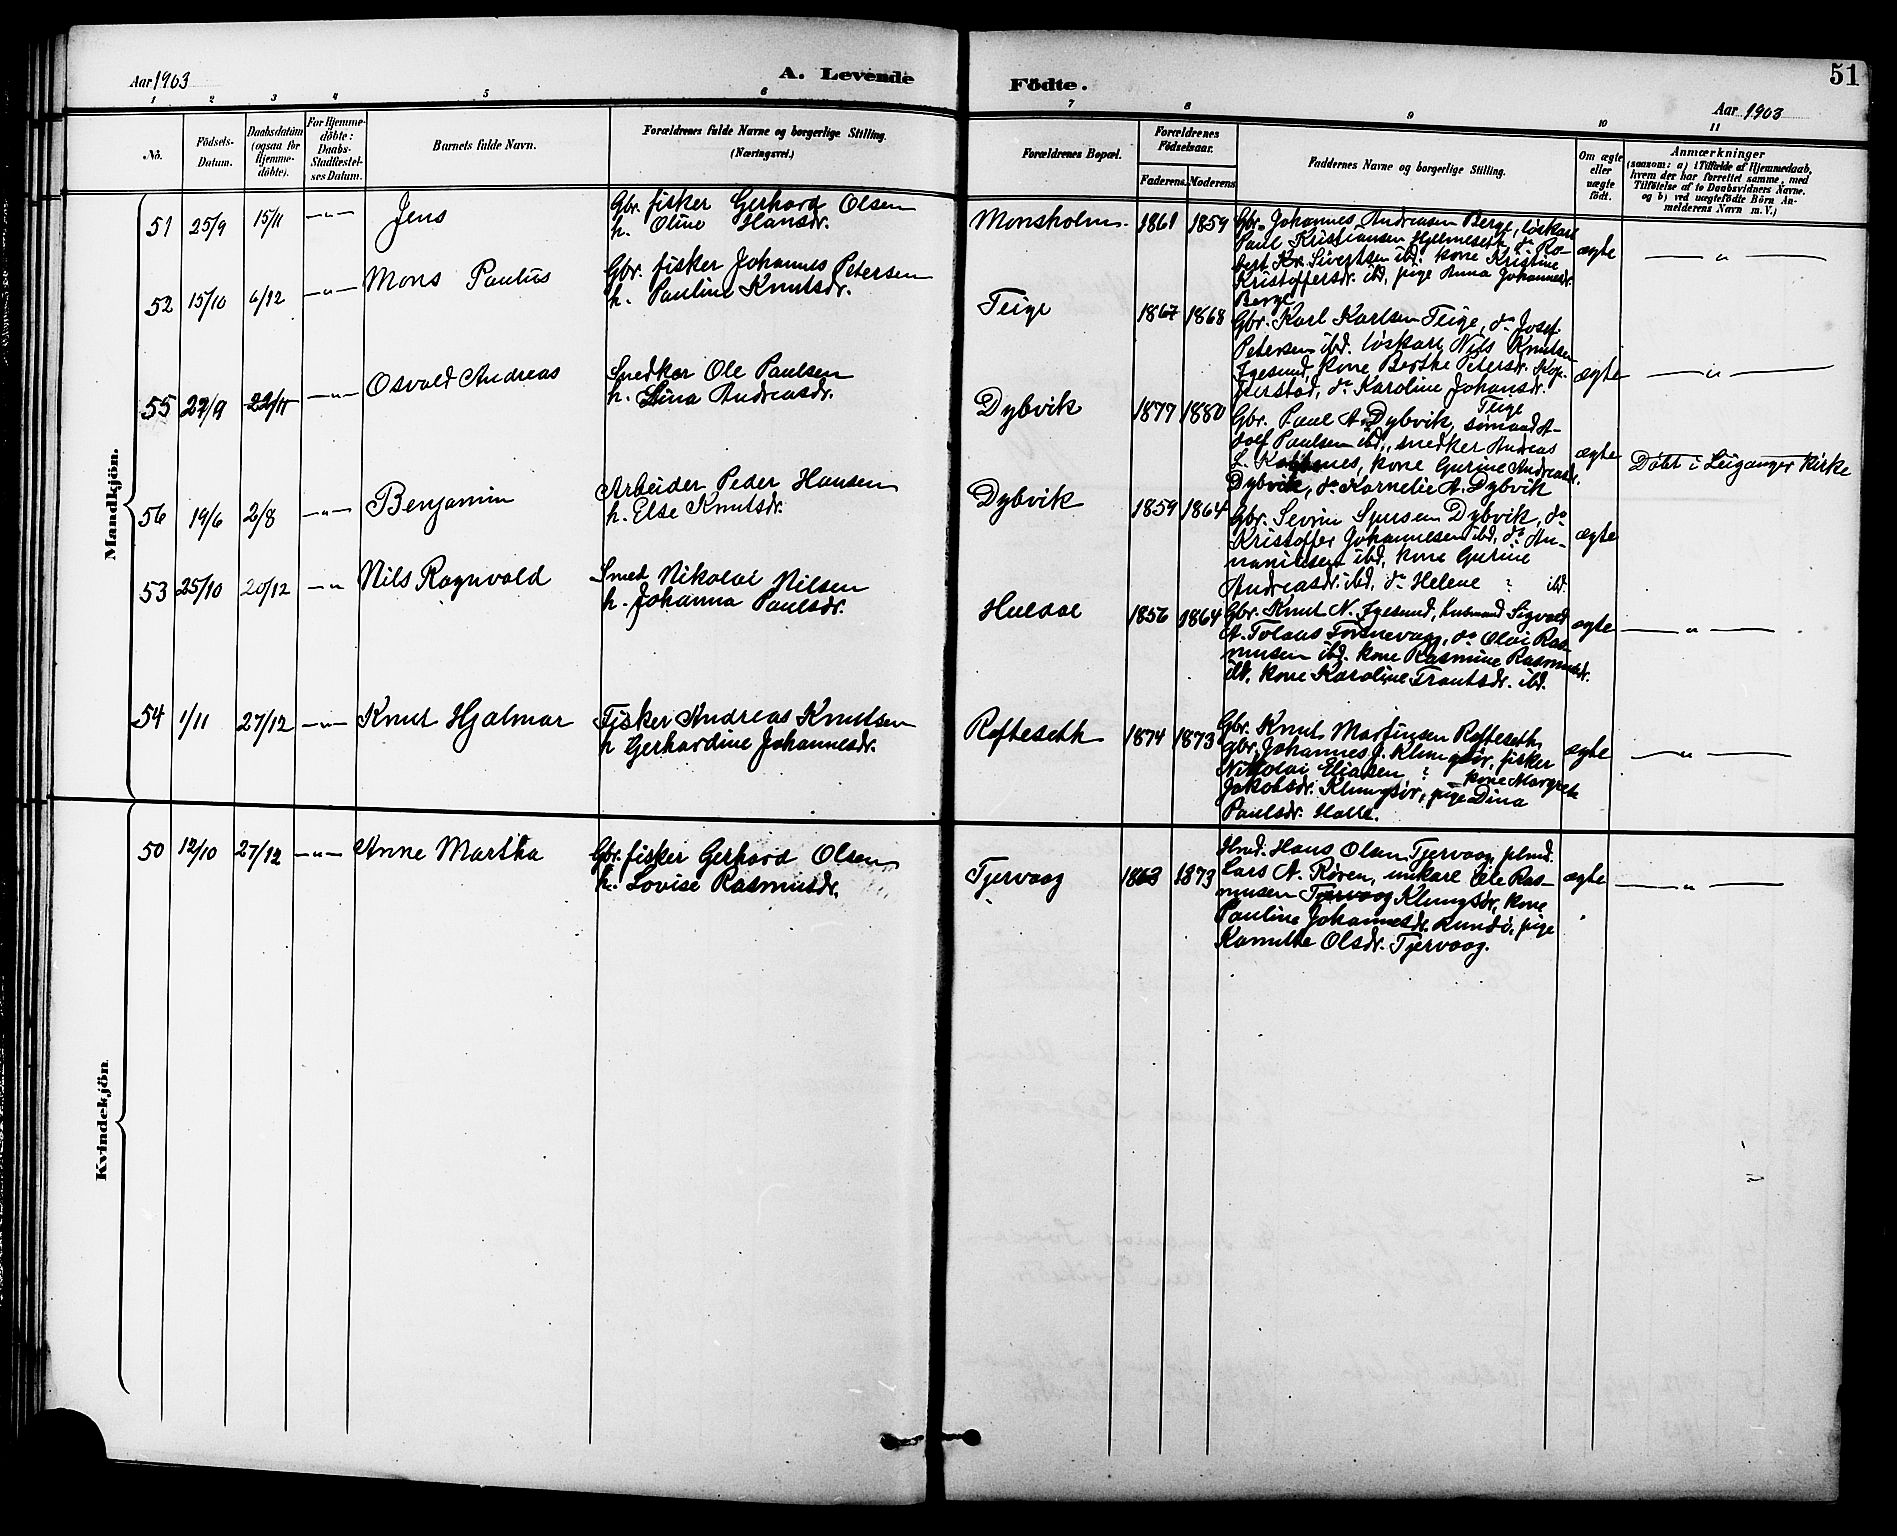 Aar 1903
A. Levende
Födte.
51
Aar 1903
1 2 3 4 5 6 7 8 9 10 11
No.
Födsels-
Datum.
Daabsdatum
(ogsaa for
Hjemme-
döbte).
For Hjemme-
döbte:
Daabs-
Stadfæstel-
ses Datum.
Barnets fulde Navn.
Forældrenes fulde Navne og borgerlige Stilling.
(Næringsvei.)
Forældrenes Bopæl.
Forældrenes
Födselsaar.
Faderens.
Moderens.
Faddernes Navne og borgerlige Stilling.
Om ægte
eller
uægte
født.
Anmærkninger
(saasom: a) i Tilfælde af Hjemmedaab,
hvem der har forrettet samme, med
Tilföielse af to Daabsvidners Navne.
og b) ved uægtefödte Börn An-
melderens Navn m. V.)
Mandkjön.
51 25/9 15/11 —"— Jens
Gbr. fisker Gerhard Olsen
h. Oline Hansdr.
Monsholm 1861 1859
Gbr. Johannes Andreasen Berge, löskarl
Paul Kristiansen Hjelmeseth, do Ro-
bert Kr. Sivertsen ibd. kone Kristine
Kristoffersdr. ibd, pige Anna Johannesdr.
Berge
ægte —"—
52 15/10 6/12 —"— Mons Paulus
Gbr. fisker Johannes Petersen
h. Pauline Knutsdr.
Teige 1867 1868
Gbr. Karl Karlsen Teige, do Josef
Petersen ibd. löskarl Nils Knutsen
Egesund, kone Berthe Petersdr.
do Karoline Johansdr.
Teige
ægte —"—
55 22/11 —"— Osvald Andreas
Snedker Ole Paulsen
h. Lina Andreasdr.
Dybvik 1877 1880
Gbr. Paul A. Dybvik, sömand A-
dolf Paulsen ibd., snedker Andreas
L. kone Gurine Andreasdr.
Dybvik, do Kornelie A. Dybvik
ægte Döbt i Leiganger Kirke
56 19/6 2/8 —"— Benjamin
Arbeider Peder Hansen
h. Else Knutsdr.
Dybvik 1859 1864
Gbr. Sevrin Dybvik, do
Kristoffer Johannesen ibd, do An-
ibd, kone Gurine
Andreasdr. ibd, do Helene " ibd.
ægte
53 25/10 20/12 —"— Nils Ragnvald
Smed Nikolai Nilsen
h. Johanna Paulsdr.
Huldal 1856 1864
Gbr. Knut N. Egesund, husmand Sigvald
A. Tolaas Fosnevaag, do Olai Ras-
musen ibd. kone Rasmine Rasmusdr.
ibd, kone Karoline ibd.
ægte —"—
54 1/11 27/12 —"— Knut Hjalmar
Fisker Andreas Knutsen
h Gerhardine Johannesdr.
Rafteseth 1874 1873
Gbr. Knut Martinsen Rafteseth,
gbr. Johannes J. Klungsör, fisker
Nikolai Eliasen " kone Margrete
Jakobsdr. Klungsör, pige Dina
Paulsdr.
ægte —"—
Kvindekjön
50 12/10 27/12 —"— Anne Martha
Gbr. fisker Gerhard Olsen
h. Lovise Rasmusdr.
Tjervaag 1863 1873
Hmd. Hans Olsen Tjervaag,
Lars A. Rören, unkarl Ole Ras-
musen Tjervaag Klungsör, kone
Pauline Johannesdr. Rundö, pige
Kamilla Olsdr. Tjervaag.
ægte —"—